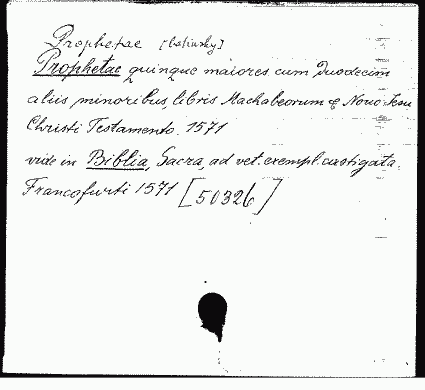 Prophetae [latinsky]
Prophetae quinque maiores cum Duodecim
aliis minoribus, libris Machabeorum & Novo Jesu
Christi Testamento. 1571
vide in Biblia, Sacra, ad vet. exempl. castigata.
Francofurti 1571 [50326]